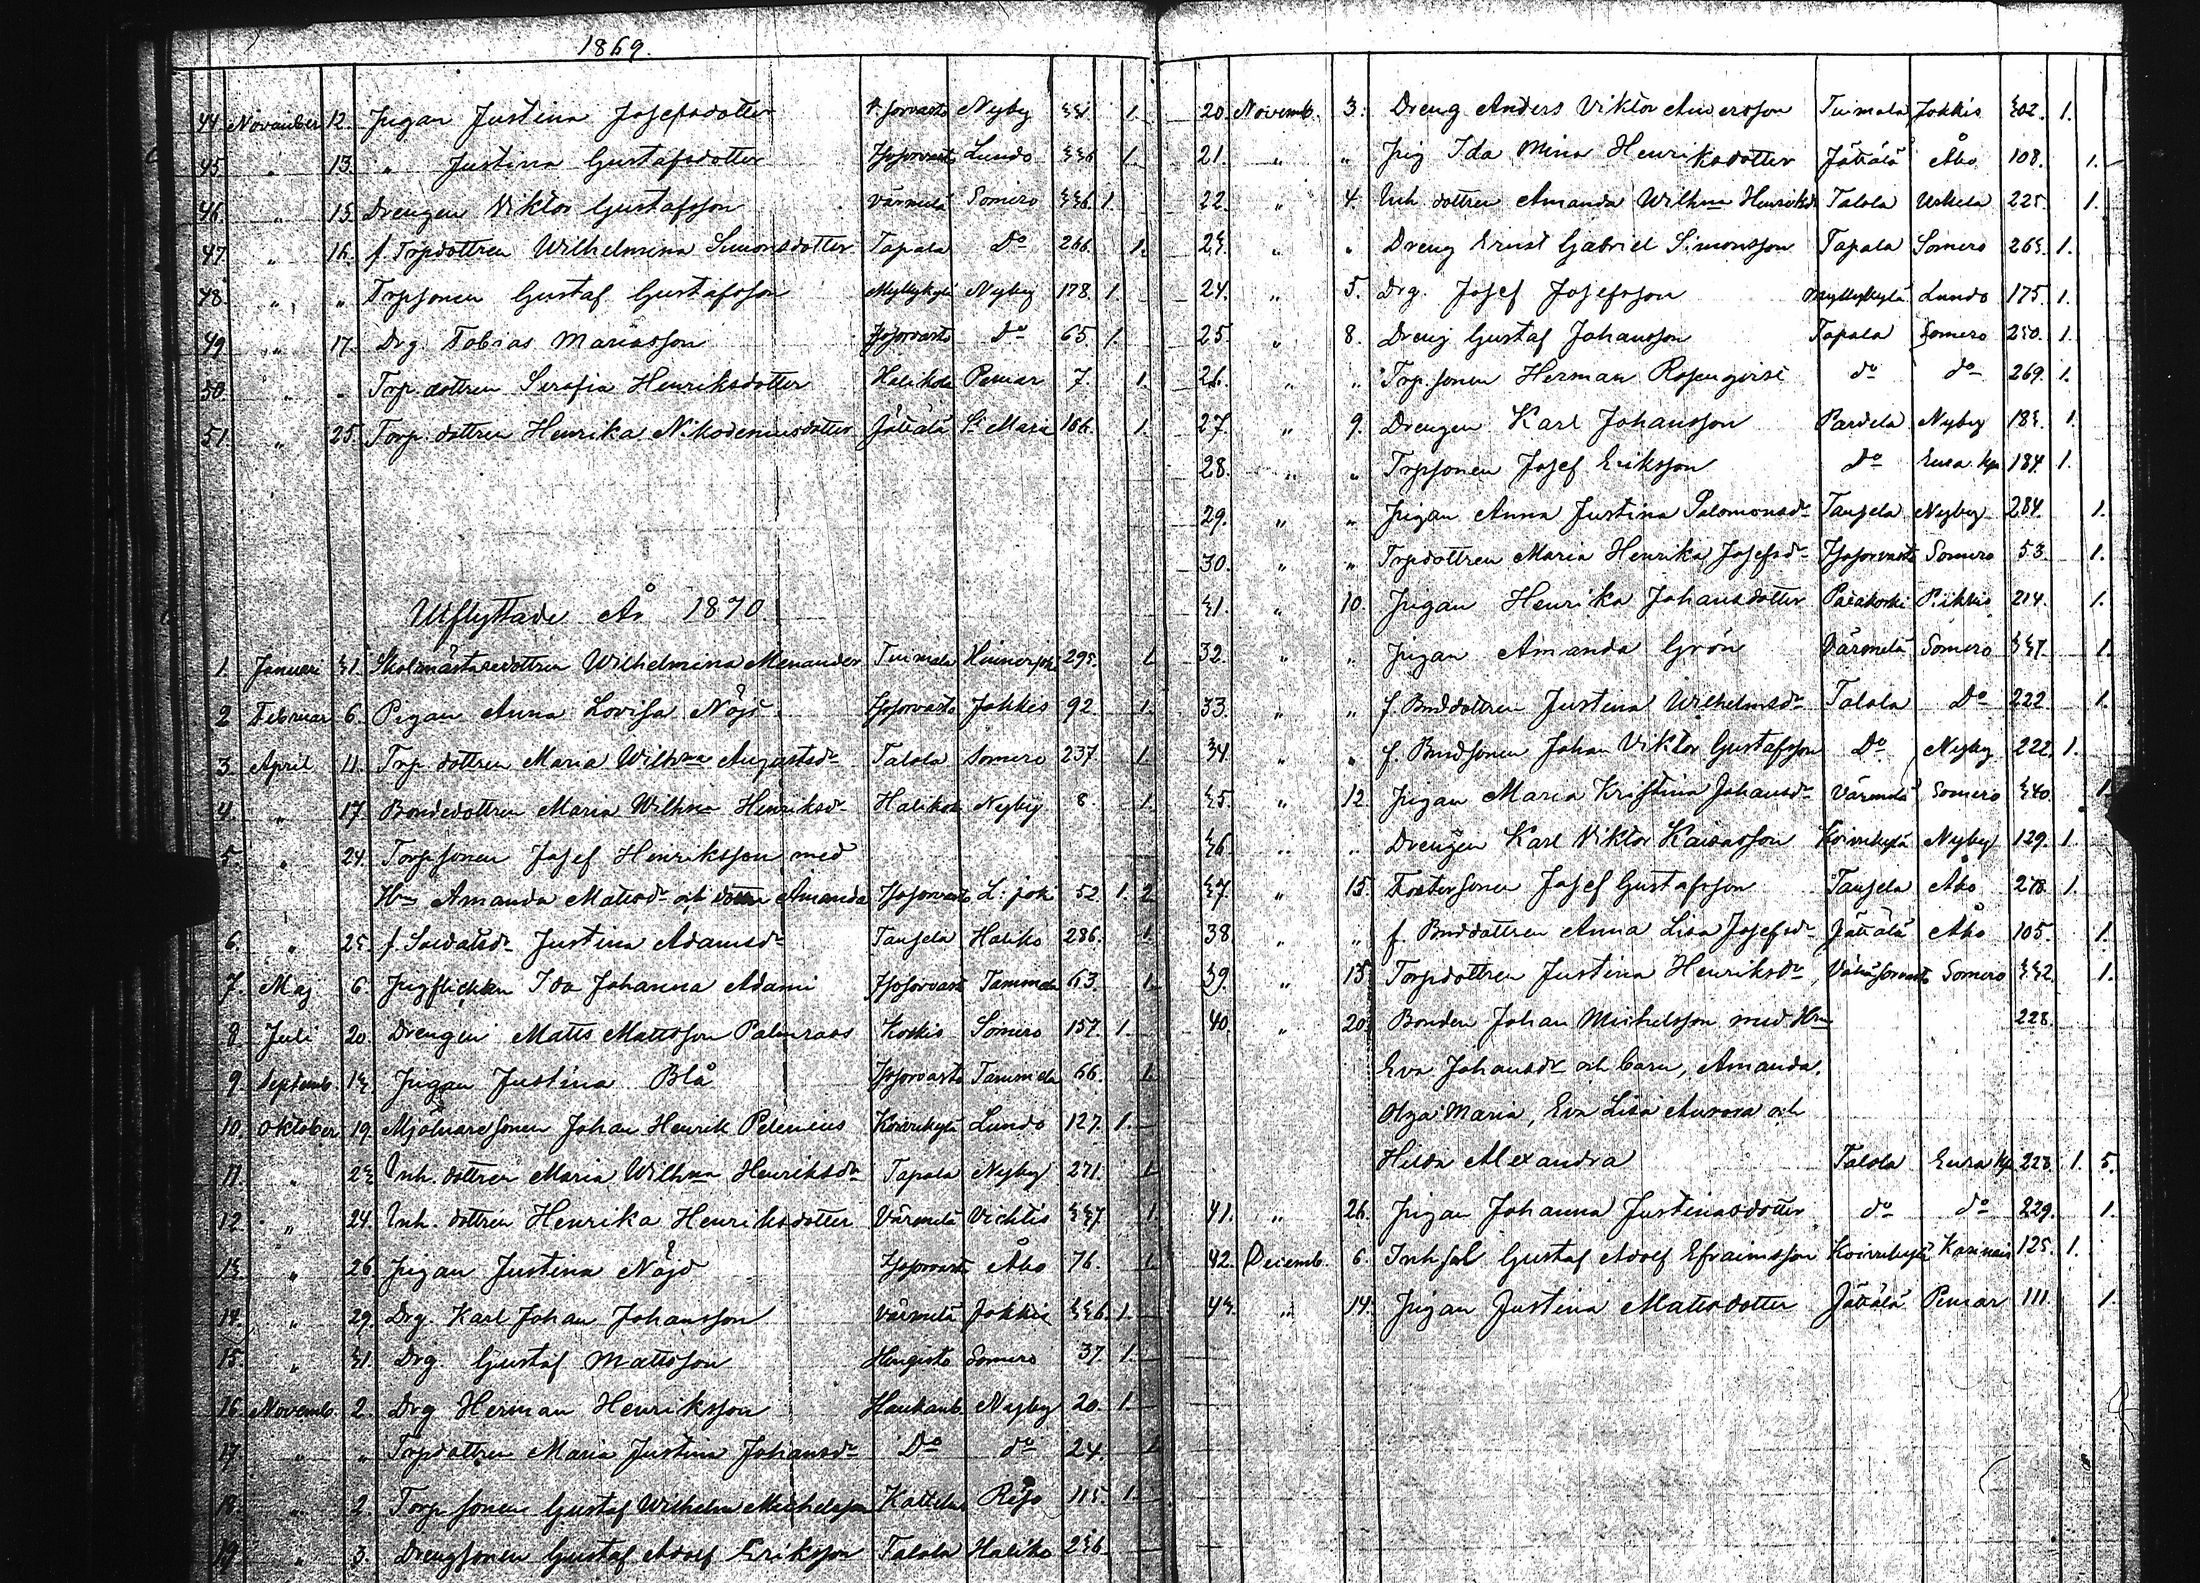 1869.
44. November 12. Pigan Justina Josefsdotter V. sorvasto Nyby 331 1.
45 " 13. " Justina Gustafsdotter Isosorvasto Lundo 336 1.
46. " 15 Drengen Viktor Gustafsson Värmelä Somero 336. 1.
47. " 16. f. Torpdottren Wilhelmina Simonsdotter Tapala Do 266. 1.
48. " " Torpsonen Gustaf Gustafsson Myllykylä Nyby 178. 1
49 " 17. Drg. Tobias Mariasson Isosorvasto Do 65. 1.
50. " " Torp. dottren Serafia Henriksdotter Halikola Pemar 7. 1.
51. " 25. Torp. dottren Henrika Nikodemusdotter Jättälä St Marie 166. 1.
Utflyttade År 1870.
1. Januari 31. Skolmästaredottren Wilhelmina Menander Tuimala 295. 1
2 Februar 6. Pigan Anna Lovisa Nöjd Isosorvasto Jokkis 92. 1.
3. April 11. Torp. dottren Maria Wilhna Augustsdr Talola Somero 237. 1.
4. " 17. Bondedottren Maria Wilhna Henriksdr Halikola Nyby 8. 1.
5. " 24. Torpsonen Josef Henriksson med
Hu Amanda Matsdr och dottren Amanda Isosorvasto L: joki 52. 1. 2
6. " 25. f. Soldatsdr Justina Adamsdr Tausela Haliko 286. 1.
7. Maj 6. Pigflickan Ida Johanna Adami Isosorvasto Tammela 63. 1.
8. Juli 20. Drengen Matts Mattsson Palmroos Koskis Somero 157. 1.
9. Septemb. 13. Pigan Justina Blå Isosorvasto Tammela 66. 1.
10. Oktober 19. Mjölnaresonen Johan Henrik Pelenius Koivukylä Lundo 127. 1.
11. " 23 Inh. dottren Maria Wilhna Henriksdr Tapala Nyby 271. 1
12. " 24. Inh. dottren Henrika Henriksdotter Värmelä Vichtis 337. 1.
13. " 26 Pigan Justina Nöjd Isosorvasto Åbo 76. 1.
14. " 29. Drg. Karl Johan Johansson Värmelä Jokkis 336. 1.
15. " 31. Drg. Gustaf Mattsson Hingisto Somero 37. 1.
16. Novemb. 2. Drg Herman Henriksson Haukanb. Nyby 20. 1.
17. " " Torpdottren Maria Justina Johansdr Do do 24. 1
18. " 2. Torp. sonen Gustaf Wilhelm Michelsson Kattelus Resö 115. 1.
19 " 3. Drengsonen Gustaf Adolf Eriksson Talola Haliko 236
20. Novemb. 3. Dreng Anders Viktor Andersson Tuimala Jokkis 302. 1.
21. " " Pig Ida Mina Henriksdotter Jättälä Åbo 108. 1.
22. " 4. Inh dottren Amanda Wilhna Henriksdr Talola Uskela 225. 1.
23. " " Dreng Ernst Gabriel Simonsson Tapala Somero 263. 1.
24. " 5. Drg. Josef Josefsson Myllykylä Lundo 175. 1.
25. " 8. Dreng Gustaf Johansson Tapala Somero 250. 1.
26. " " Torp. sonen Herman do do 269. 1.
27. " 9. Drengen Karl Johansson Pardela Nyby 183. 1.
28. " " Torpsonen Josef Eriksson do Eura kp 184 1.
29. " " Pigan Anna Justina Salomonsdr Tausela Nyby 284. 1.
30. " " Torpdottren Maria Henrika Josefsdr Isosorvasto Somero 53. 1.
31. " 10. Pigan Henrika Johansdotter Patakoski Pikkis 214. 1.
32. " " Pigan Amanda Grön Värmelä Somero 337. 1.
33. " " f. Bonddottren Justina Wilhelmsdr Talola Do 222. 1.
34. " " f. Bondsonen Johan Viktor Gustafsson Do Nyby 222. 1.
35 " 12 Pigan Maria Kristina Johansdr Värmelä Somero 340. 1.
36 " " Drengen Karl Viktor Kaisasson Koivukylä Nyby 129. 1
37 " 13 Fostersonen Josef Gustafsson Tausela Åbo 278. 1.
38. " " f. Bonddottren Anna Lisa Josefsdr Jättälä Åbo 105. 1.
39. " 15 Torpdottren Justina Henriksdr Vähäsorvasto Somero 332. 1.
40. " 20. Bonden Johan Michelsson med Hu 228
Eva Johansdr och barn, Amanda,
Olga Maria, Eva Lisa Aurora och
Hilda Alexandra Talola Eura kp 228. 1. 5.
41. " 26. Pigan Johanna Justinasdotter do do 229. 1.
42. Decemb. 6. Inhsol Gustaf Adolf Efraimsson Koivukylä Karinais 125. 1.
43. " 14. Pigan Justina Matsdotter Jättälä Pemar 111. 1.